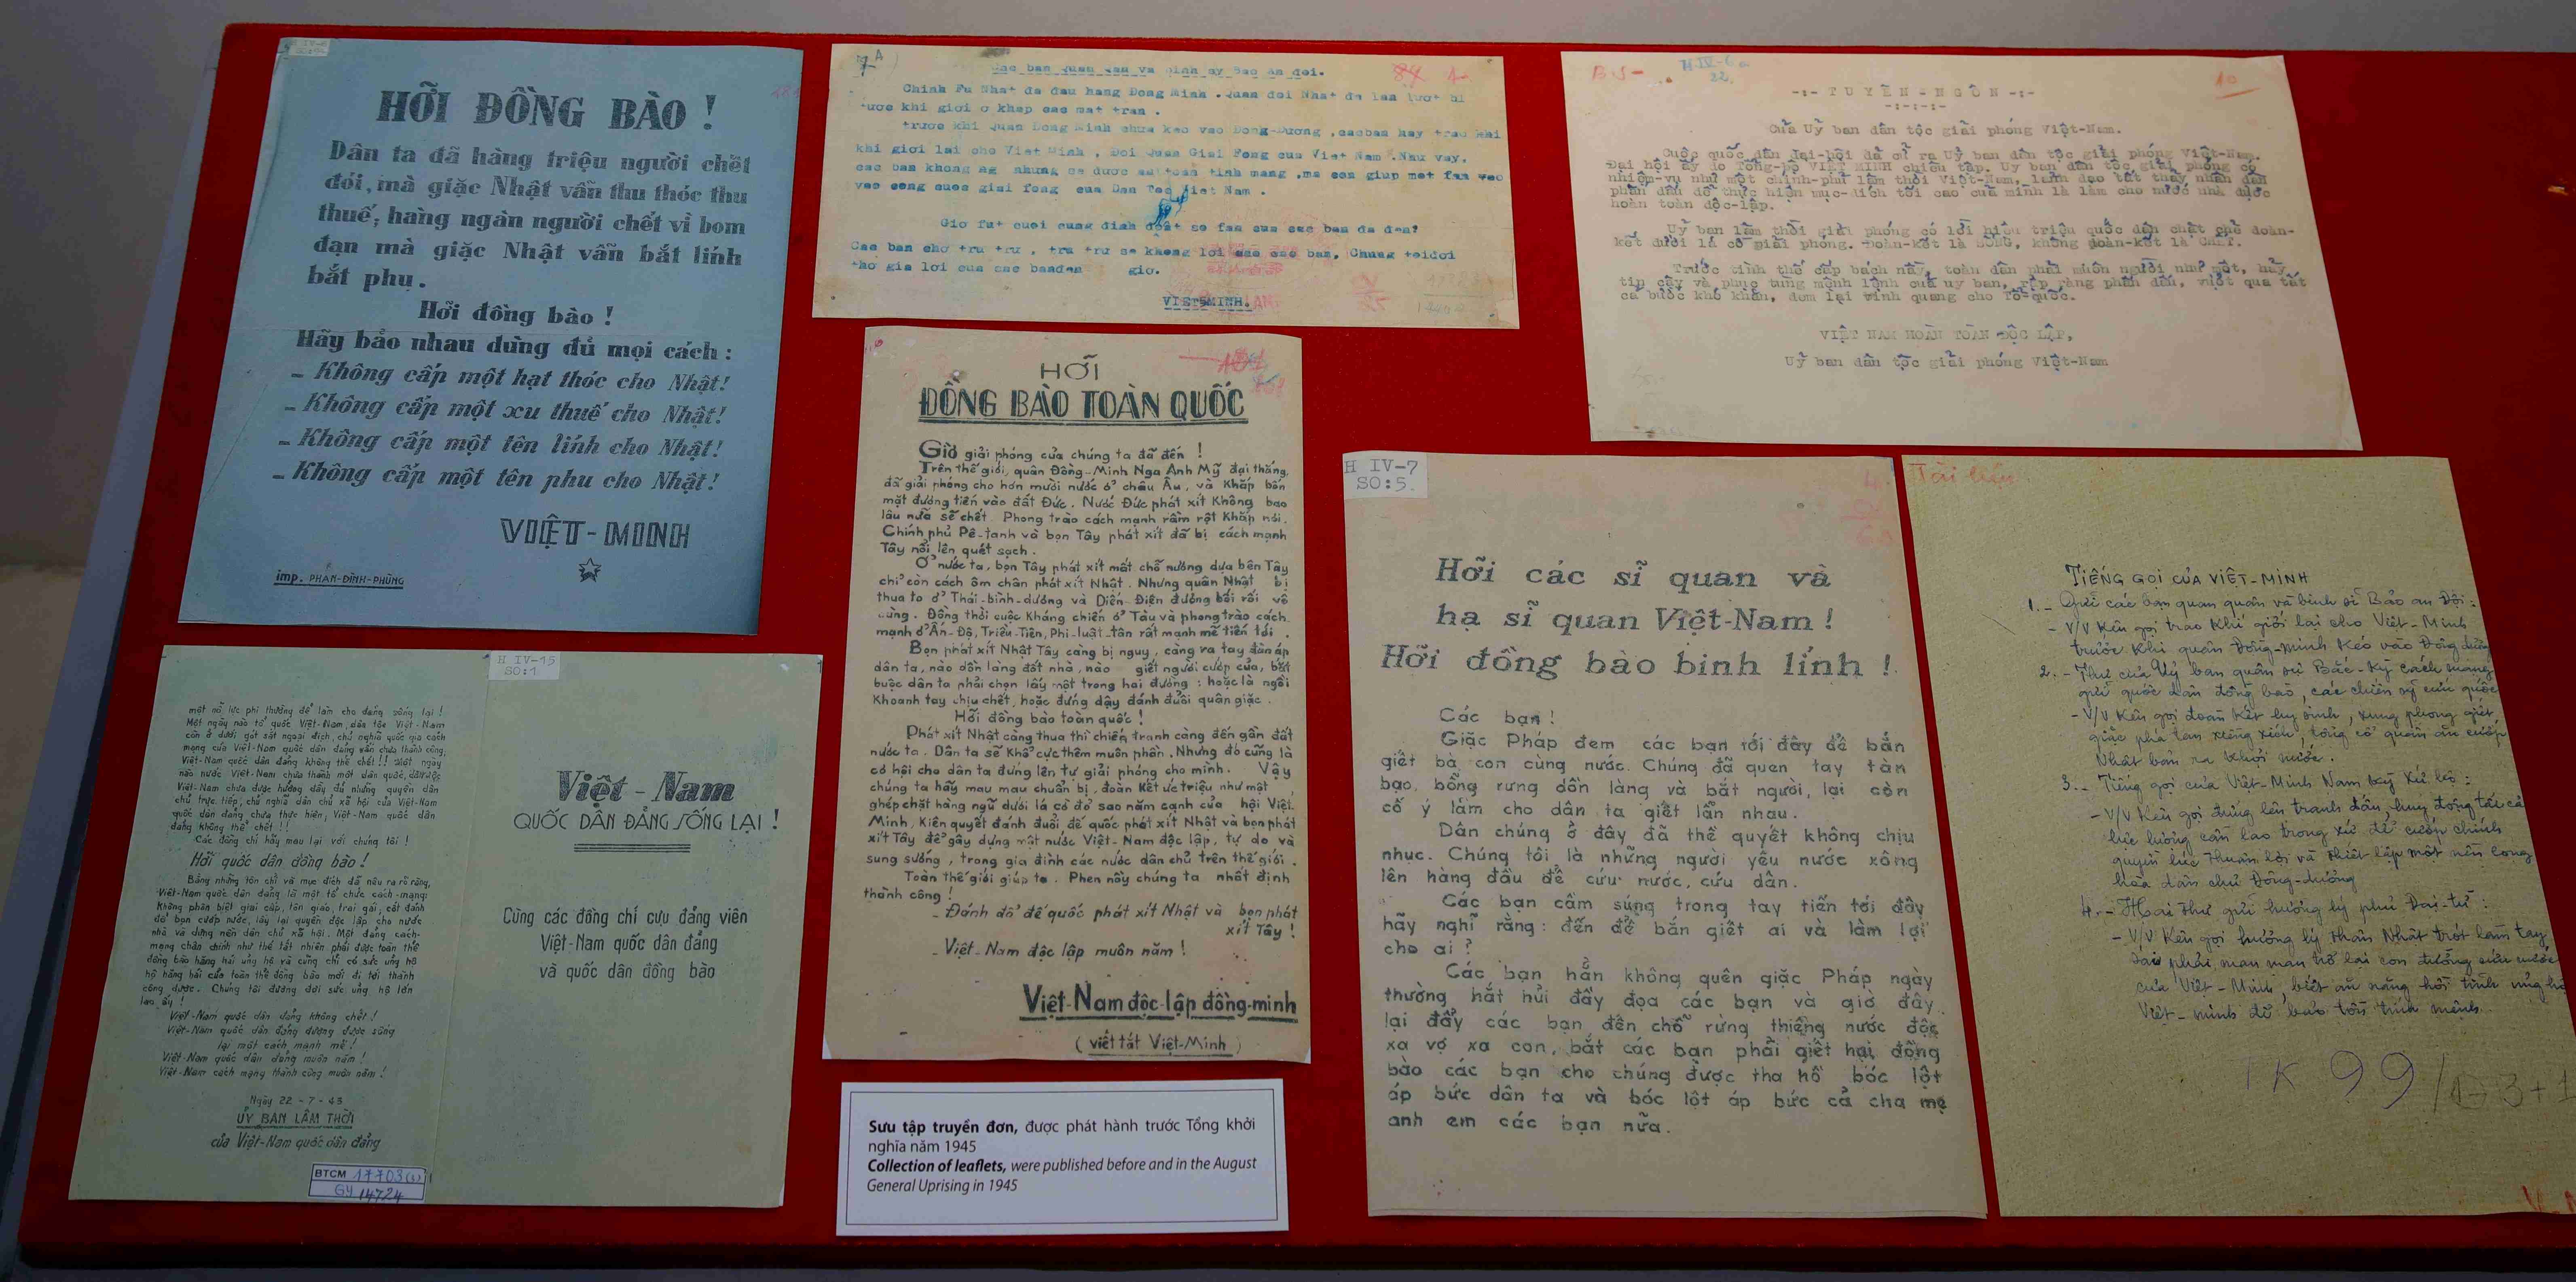 HỠI ĐỒNG BÀO !
Dân ta đã hàng triệu người chết
đói, mà giặc Nhật vẫn thu thóc thu
thuế; hàng ngàn người chết vì bom
đạn mà giặc Nhật vẫn bắt lính
bắt phu.
Hỡi đồng bào !
Hãy bảo nhau dùng đủ mọi cách :
- Không cấp một hạt thóc cho Nhật!
- Không cấp một xu thuế cho Nhật!
- Không cấp một tên lính cho Nhật!
- Không cấp một tên phu cho Nhật!
VIỆT-MINH
imp. PHAN-ĐÌNH-PHÙNG
7A
Cac ban quan va binh sy Bao an doi.
Chinh Fu Nhat da dau hang Dong Minh . Quan doi Nhat da lan luot bi
tuoc khi gioi o khap cac mat tran .
truoc khi Quan Dong Minh chua keo vao Dong-Duong ,cacban hay trao
khi gioi lai cho Viet Minh , Doi Quan Giai Fong cua Viet Nam .Nhu vay,
cac ban khong ng nhung se duoc an toan tinh mang ,ma con giup mot fan vao
vao cong cuoc giai fong cua Dan Toc Viet Nam .
Gio fut cuoi cung dinh doat so fan cua cac ban da den?
Cac ban cho tru tru , tru tru se khong loi cac ban, Chung toidoi
tho gia loi cua cac banden gio.
VIETMINH.
H IV-6
22.
10
-:- TUYÊN-NGÔN -:-
-:-:-:-
Của Uỷ ban dân tộc giải phóng Việt-Nam.
Cuộc quốc dân đại-hội đã cử ra Uỷ ban dân tộc giải phóng Việt-Nam.
Đại hội ấy do Tổng-bộ VIỆT MINH chiêu tập. Uỷ ban dân tộc giải phóng có
nhiệm-vụ như một chính-phủ lâm thời Việt-Nam, lãnh đạo tất thảy nhân dân
phấn đấu để thực hiện mục-đích tối cao của mình là làm cho nước nhà được
hoàn toàn độc-lập.
Uỷ ban lâm thời giải phóng có lời hiệu triệu quốc dân chặt chẽ đoàn-
kết dưới lá cờ giải phóng. Đoàn-kết là SỐNG, không đoàn-kết là CHẾT.
Trước tình thế cấp bách nầy, toàn dân phải muôn người như một, hãy
tin cậy và phục tùng mệnh lệnh của uỷ ban, rập ràng phấn đấu, vượt qua tất
cả bước khó khăn, đem lại vinh quang cho Tổ-quốc.
VIỆT NAM HOÀN TOÀN ĐỘC LẬP,
Uỷ ban dân tộc giải phóng Việt-Nam
HỠI
ĐỒNG BÀO TOÀN QUỐC
Giờ giải phóng của chúng ta đã đến !
Trên thế giới, quân Đồng-Minh Nga Anh Mỹ đại thắng,
đã giải phóng cho hơn mười nước ở châu Âu, và khắp bốn
mặt đương tiến vào đất Đức. Nước Đức phát xít không bao
lâu nữa sẽ chết. Phong trào cách mạnh rầm rột khắp nơi.
Chính phủ Pê-tanh và bọn Tây phát xít đã bị cách mạnh
Tây nổi lên quét sạch.
Ở nước ta, bọn Tây phát xít mất chỗ nương dựa bên Tây
chỉ còn cách ôm chân phát xít Nhật. Nhưng quân Nhật bị
thua to ở Thái-bình-dương và Diến-Điện đương bối rối vô
cùng. Đồng thời cuộc kháng chiến ở Tàu và phong trào cách
mạnh ở Ấn-Độ, Triều-Tiên, Phi-luật-tân rất mạnh mẽ tiến tới.
Bọn phát xít Nhật Tây càng bị nguy, càng ra tay đàn áp
dân ta, nào dồn làng đốt nhà, nào giết người cướp của, bắt
buộc dân ta phải chọn lấy một trong hai đường : hoặc là ngồi
khoanh tay chịu chết, hoặc đứng dậy đánh đuổi quân giặc.
Hỡi đồng bào toàn quốc !
Phát xít Nhật càng thua thì chiến tranh càng đến gần đất
nước ta. Dân ta sẽ khổ cực thêm muôn phần. Nhưng đó cũng là
cơ hội cho dân ta đứng lên tự giải phóng cho mình. Vậy
chúng ta hãy mau mau chuẩn bị, đoàn kết ức triệu như một,
ghép chặt hàng ngũ dưới lá cờ đỏ sao năm cạnh của hội Việt
Minh, kiên quyết đánh đuổi đế quốc phát xít Nhật và bọn phát
xít Tây để gây dựng một nước Việt-Nam độc lập, tự do và
sung sướng, trong gia đình các nước dân chủ trên thế giới.
Toàn thế giới giúp ta. Phen nầy chúng ta nhất định
thành công !
- Đánh đổ đế quốc phát xít Nhật và bọn phát
xít Tây !
- Việt-Nam độc lập muôn năm !
Việt-Nam độc-lập đồng-minh
( viết tắt Việt-Minh )
H IV-7
SO:5.
Hỡi các sĩ quan và
hạ sĩ quan Việt-Nam !
Hỡi đồng bào binh lính !
Các bạn !
Giặc Pháp đem các bạn tới đây để bắn
giết bà con cùng nước. Chúng đã quen tay tàn
bạo, bỗng rưng dồn làng và bắt người, lại còn
cố ý làm cho dân ta giết lẫn nhau.
Dân chúng ở đây đã thề quyết không chịu
nhục. Chúng tôi là những người yêu nước xông
lên hàng đầu để cứu nước, cứu dân.
Các bạn cầm súng trong tay tiến tới đây
hãy nghĩ rằng: đến để bắn giết ai và làm lợi
cho ai ?
Các bạn hẳn không quên giặc Pháp ngày
thường hắt hủi đầy đọa các bạn và giờ đây
lại đẩy các bạn đến chỗ rừng thiêng nước độc
xa vợ xa con, bắt các bạn phải giết hại đồng
bào các bạn cho chúng được tha hồ bóc lột
áp bức dân ta và bóc lột áp bức cả cha mẹ
anh em các bạn nữa.
Tài liệu
TIẾNG GỌI CỦA VIỆT-MINH
1.- Gửi các bạn quan quân và binh sĩ Bảo an Đội :
- V/V Kêu gọi trao khí giới lại cho Việt-Minh
trước khi quân Đồng-minh kéo vào Đông dương
2.- Thư của Uỷ ban quân sự Bắc-Kỳ cách mạng
gửi quốc dân đồng bào, các chiến sỹ cứu quốc
- V/V Kêu gọi đoàn kết hy sinh, xung phong giết
giặc phá tan xiềng xích, tống cổ quân ăn cướp
Nhật bản ra khỏi nước.
3.- Tiếng gọi của Việt-Minh Nam kỳ xứ bộ :
- V/V Kêu gọi đứng lên tranh đấu, huy động tất cả
lực lượng cần lao trong xứ để cướp chính
quyền lúc thuận lợi và thiết lập một nền cộng
hòa dân chủ Đông-dương
4.- Hai thư gửi hương lý phủ Đại-từ :
- V/V Kêu gọi hương lý thân Nhật trót lầm tay
sai phải mau mau trở lại con đường cứu nước
của Việt-Minh, biết ăn năng hối tình ủng hộ
Việt-minh để bảo tồn tính mệnh.
1K 99
H IV-15
SO:1
một nỗ lực phi thường để làm cho đảng sống lại !
Một ngày nào tổ quốc Việt-Nam, dân tộc Việt-Nam
còn ở dưới gót sắt ngoại địch, chủ nghĩa quốc gia cách
mạng của Việt-Nam quốc dân đảng vẫn chưa thành công,
Việt-Nam quốc dân đảng không thể chết !! Một ngày
nào nước Việt-Nam chưa thành một dân quốc, dân tộc
Việt-Nam chưa được hưởng đầy đủ những quyền dân
chủ trực tiếp, chủ nghĩa dân chủ xã hội của Việt-Nam
quốc dân đảng chưa thực hiện, Việt-Nam quốc dân
đảng không thể chết !!
Các đồng chí hãy mau lại với chúng tôi !
Hỡi quốc dân đồng bào !
Bằng những tôn chỉ và mục đích đã nêu ra rõ ràng,
Việt-Nam quốc dân đảng là một tổ chức cách-mạng
không phân biệt giai cấp, tôn giáo, trai gái, cốt đánh
đổ bọn cướp nước, lấy lại quyền độc lập cho nước
nhà và dựng nên dân chủ xã hội. Một đảng cách-
mạng chân chính như thế tất nhiên phải được toàn thể
đồng bào hăng hái ủng hộ và cũng chỉ có sức ủng hộ
hộ hăng hái của toàn thể đồng bào mới đi tới thành
công được. Chúng tôi đương đợi sức ủng hộ lớn
lao ấy !
Việt-Nam quốc dân đảng không chết !
Việt-Nam quốc dân đảng đương được sống
lại một cách mạnh mẽ !
Việt-Nam quốc dân đảng muôn năm !
Việt-Nam cách mạng thành công muôn năm !
Ngày 22-7-43
UỶ BAN LÂM THỜI
của Việt-Nam quốc dân đảng
BTCM 17703(1)
Gy 14724
Việt-Nam
QUỐC DÂN ĐẢNG SỐNG LẠI !
Cùng các đồng chí cựu đảng viên
Việt-Nam quốc dân đảng
và quốc dân đồng bào
Sưu tập truyền đơn, được phát hành trước Tổng khởi
nghĩa năm 1945
Collection of leaflets, were published before and in the August
General Uprising in 1945